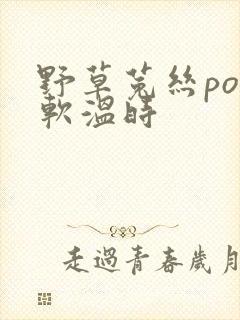 野草菟絲po
軟溫時
走過青春歲月